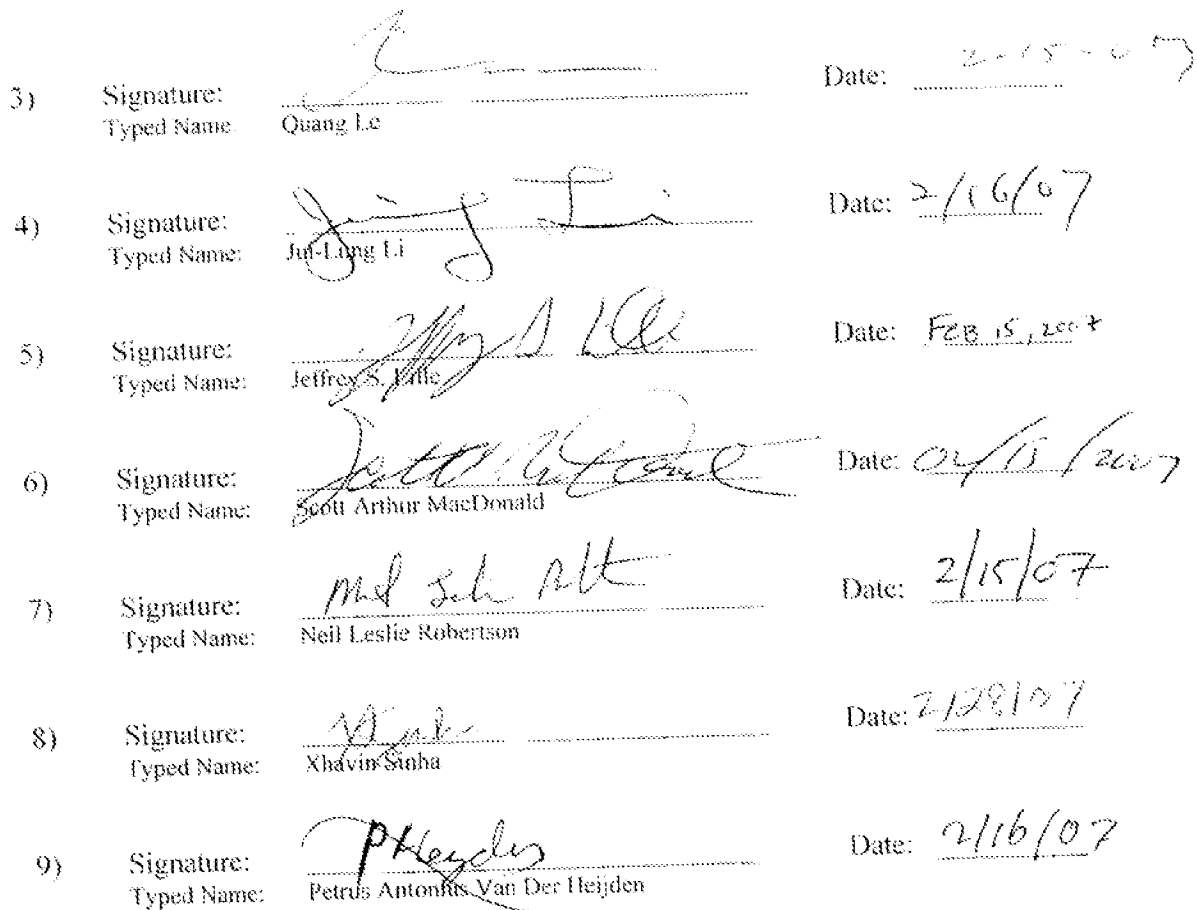 3) Signature: Date: 2-15-07
Typed Name: Quang Le
4) Signature: Date: 2/16/07
Typed Name: Jui-Lung Li
5) Signature: Jeffrey S Lille Date: FEB 15, 2007
Typed Name: Jeffrey S. Lille
6) Signature: Date: 02/15/2007
Typed Name: Scott Arthur MacDonald
7) Signature: Date: 2/15/07
Typed Name: Neil Leslie Robertson
8) Signature: Date: 2/28/07
Typed Name: Xhavin Sinha
9) Signature: Date: 2/16/07
Typed Name: Petrus Antonius Van Der Heijden